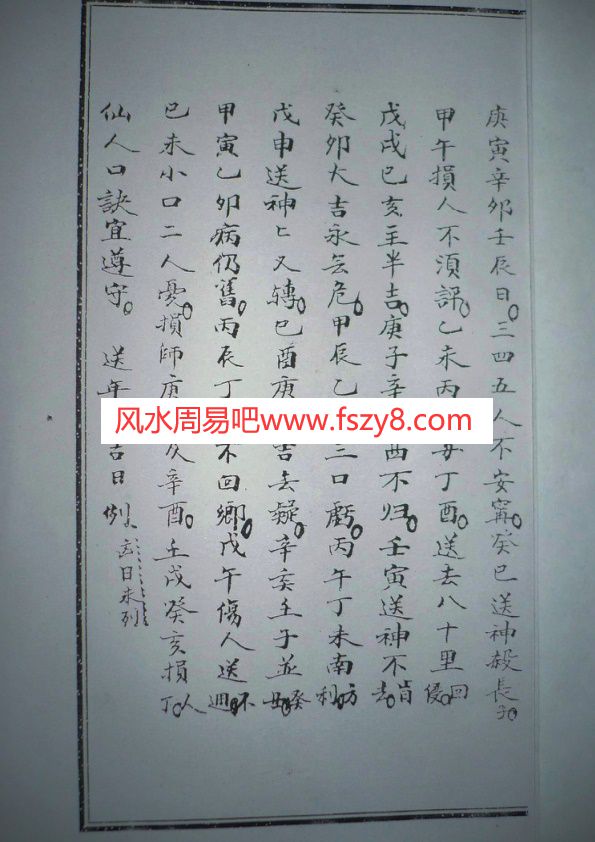 庚寅辛卯壬辰日。三四五人不安寧。癸巳送神殺長子。
甲午損人不須評。乙未丙丁酉。送去八十里回侵。
戊戌巳亥主半吉。庚子辛酉不归。壬寅送神不肯去。
癸卯大吉永无危。甲辰乙三口虧。丙午丁未南方利。
戊申送神匕又轉。巳酉庚吉去疑。辛亥壬子並癸丑。
甲寅乙卯病仍舊。丙辰丁不回鄉。戊午傷人送不週。
巳未小口二人憂。損師庚辛酉。壬戌癸亥損人丁。
仙人口訣宜遵守。 送年吉日例。 吉日未列
风水周易吧www.fszy8.com